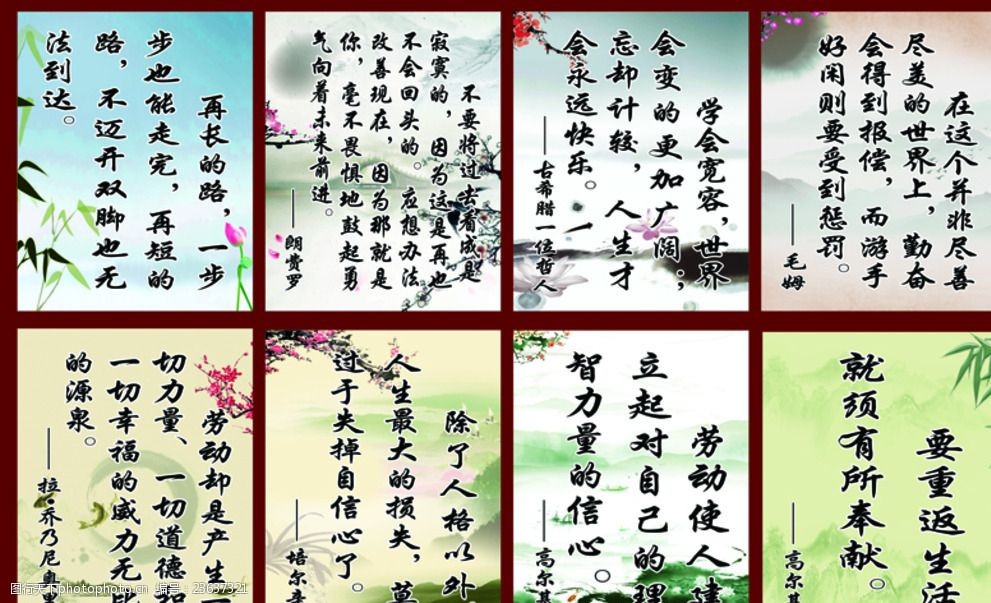 再长的路，一步
步也能走完，再短的
路，不迈开双脚也无
法到达。
不要将过去看成是
寂寞的，因为这是再也
不会回头的。应想办法
改善现在，因为那就是
你，毫不畏惧地鼓起勇
气向着未来前进。
——朗费罗
学会宽容，世界
会变的更加广阔；
忘却计较，人生才
会永远快乐。
——古希腊一位哲人
在这个并非尽善
尽美的世界上，勤奋
会得到报偿，而游手
好闲则要受到惩罚。
——毛姆
劳动却是产生一
切力量、一切道德和
一切幸福的威力无比
的源泉。
——拉·乔乃尼奥里
除了人格以外，
人生最大的损失，莫
过于失掉自信心了。
——培尔辛
劳动使人建
立起对自己的理
智力量的信心。
——高尔基
要重返生活
就须有所奉献。
——高尔基
图行天下photophoto.cn 编号：23637321